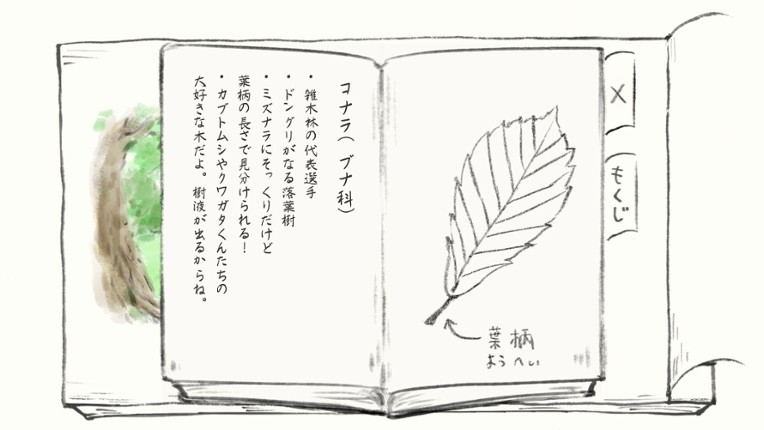 コナラ（ブナ科）
・雑木林の代表選手
・ドングリがなる落葉樹
・ミズナラにそっくりだけど
葉柄の長さで見分けられる！
・カブトムシやクワガタくんたちの
大好きな木だよ。樹液が出るからね。
葉柄
ようへい
×
もくじ